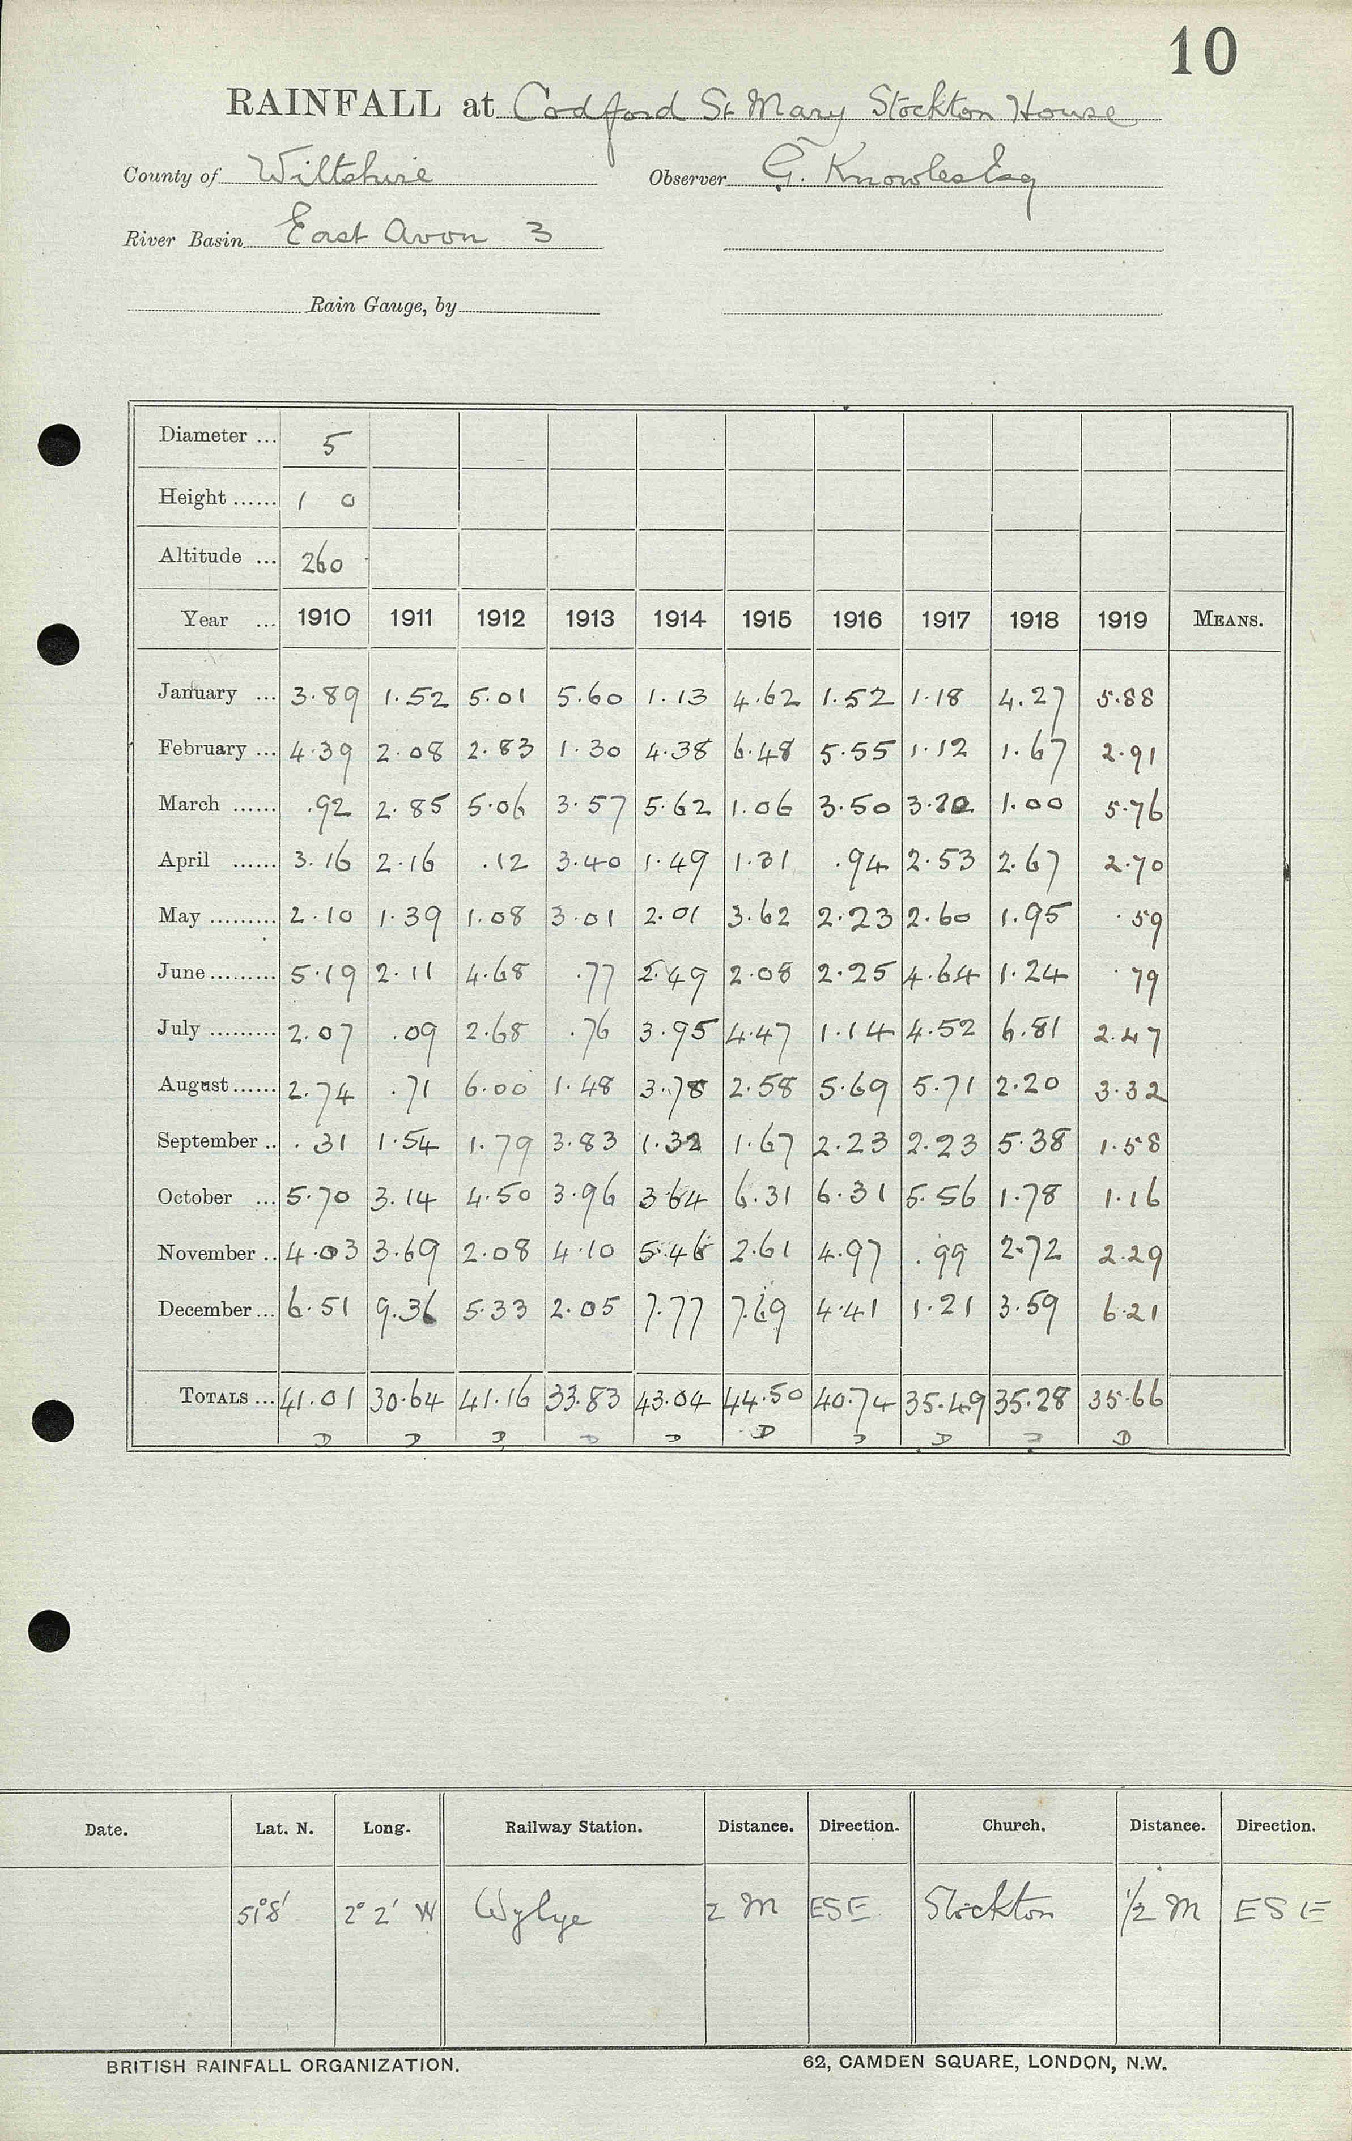 10
RAINFALL at Codford St Mary Stockton House
County of Wiltshire Observer G. Knowles Esq
River Basin East Avon 3
Rain Gauge, by
Diameter ... 5
Height ...... 1 0
Altitude ... 260
Year ... 1910 1911 1912 1913 1914 1915 1916 1917 1918 1919 MEANS.
January ... 3.89 1.52 5.01 5.60 1.13 4.62 1.52 1.18 4.27 5.88
February ... 4.39 2.08 2.83 1.30 4.38 6.48 5.55 1.12 1.67 2.91
March ...... .92 2.85 5.06 3.57 5.62 1.06 3.50 3.20 1.00 5.76
April ...... 3.16 2.16 .12 3.40 1.49 1.31 .94 2.53 2.67 2.70
May ......... 2.10 1.39 1.08 3.01 2.01 3.62 2.23 2.60 1.95 .59
June ......... 5.19 2.11 4.68 .77 2.49 2.08 2.25 4.64 1.24 .79
July ......... 2.07 .09 2.68 .76 3.95 4.47 1.14 4.52 6.81 2.47
August ...... 2.74 .71 6.00 1.48 3.78 2.58 5.69 5.71 2.20 3.32
September .. .31 1.54 1.79 3.83 1.32 1.67 2.23 2.23 5.38 1.58
October ... 5.70 3.14 4.50 3.96 3.64 6.31 6.31 5.56 1.78 1.16
November .. 4.03 3.69 2.08 4.10 5.46 2.61 4.97 .99 2.72 2.29
December ... 6.51 9.36 5.33 2.05 7.77 7.69 4.41 1.21 3.59 6.21
TOTALS ... 41.01 30.64 41.16 33.83 43.04 44.50 40.74 35.49 35.28 35.66
D D D D D D D D D D
Date. Lat. N. Long. Railway Station. Distance. Direction. Church. Distance. Direction.
51°8' 2° 2' W Wylye 2 M ESE Stockton 1/2 M ESE
BRITISH RAINFALL ORGANIZATION. 62, CAMDEN SQUARE, LONDON, N.W.